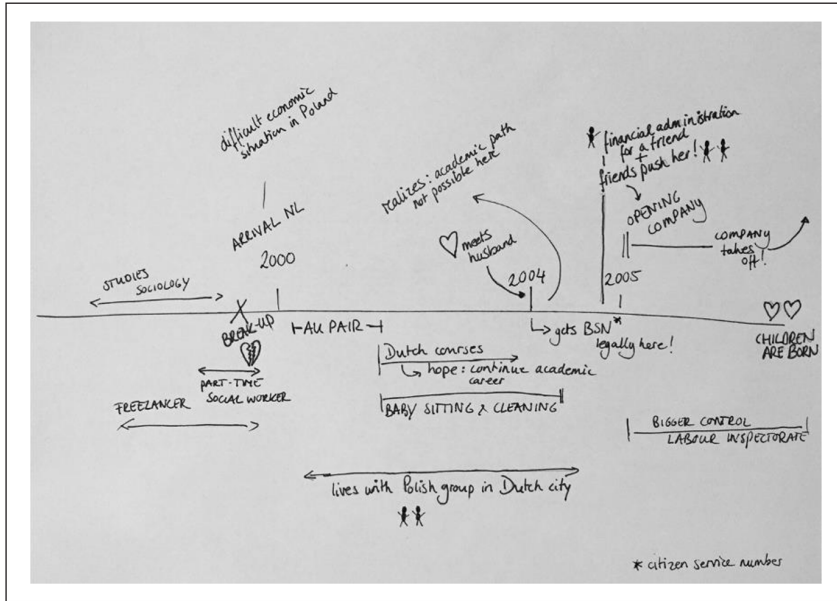 difficult economic
situation in Poland
ARRIVAL NL
2000
STUDIES
SOCIOLOGY
BREAK-UP
PART-TIME
SOCIAL WORKER
FREELANCER
AU PAIR
realizes: academic path
not possible here
meets
husband
2004
gets BSN*
legally here!
Dutch courses
hope: continue academic
career
BABY SITTING & CLEANING
lives with Polish group in Dutch city
financial administration
for a friend
+
friends push her!
OPENING
COMPANY
2005
COMPANY
takes
off!
CHILDREN
ARE BORN
BIGGER CONTROL
LABOUR INSPECTORATE
* citizen service number